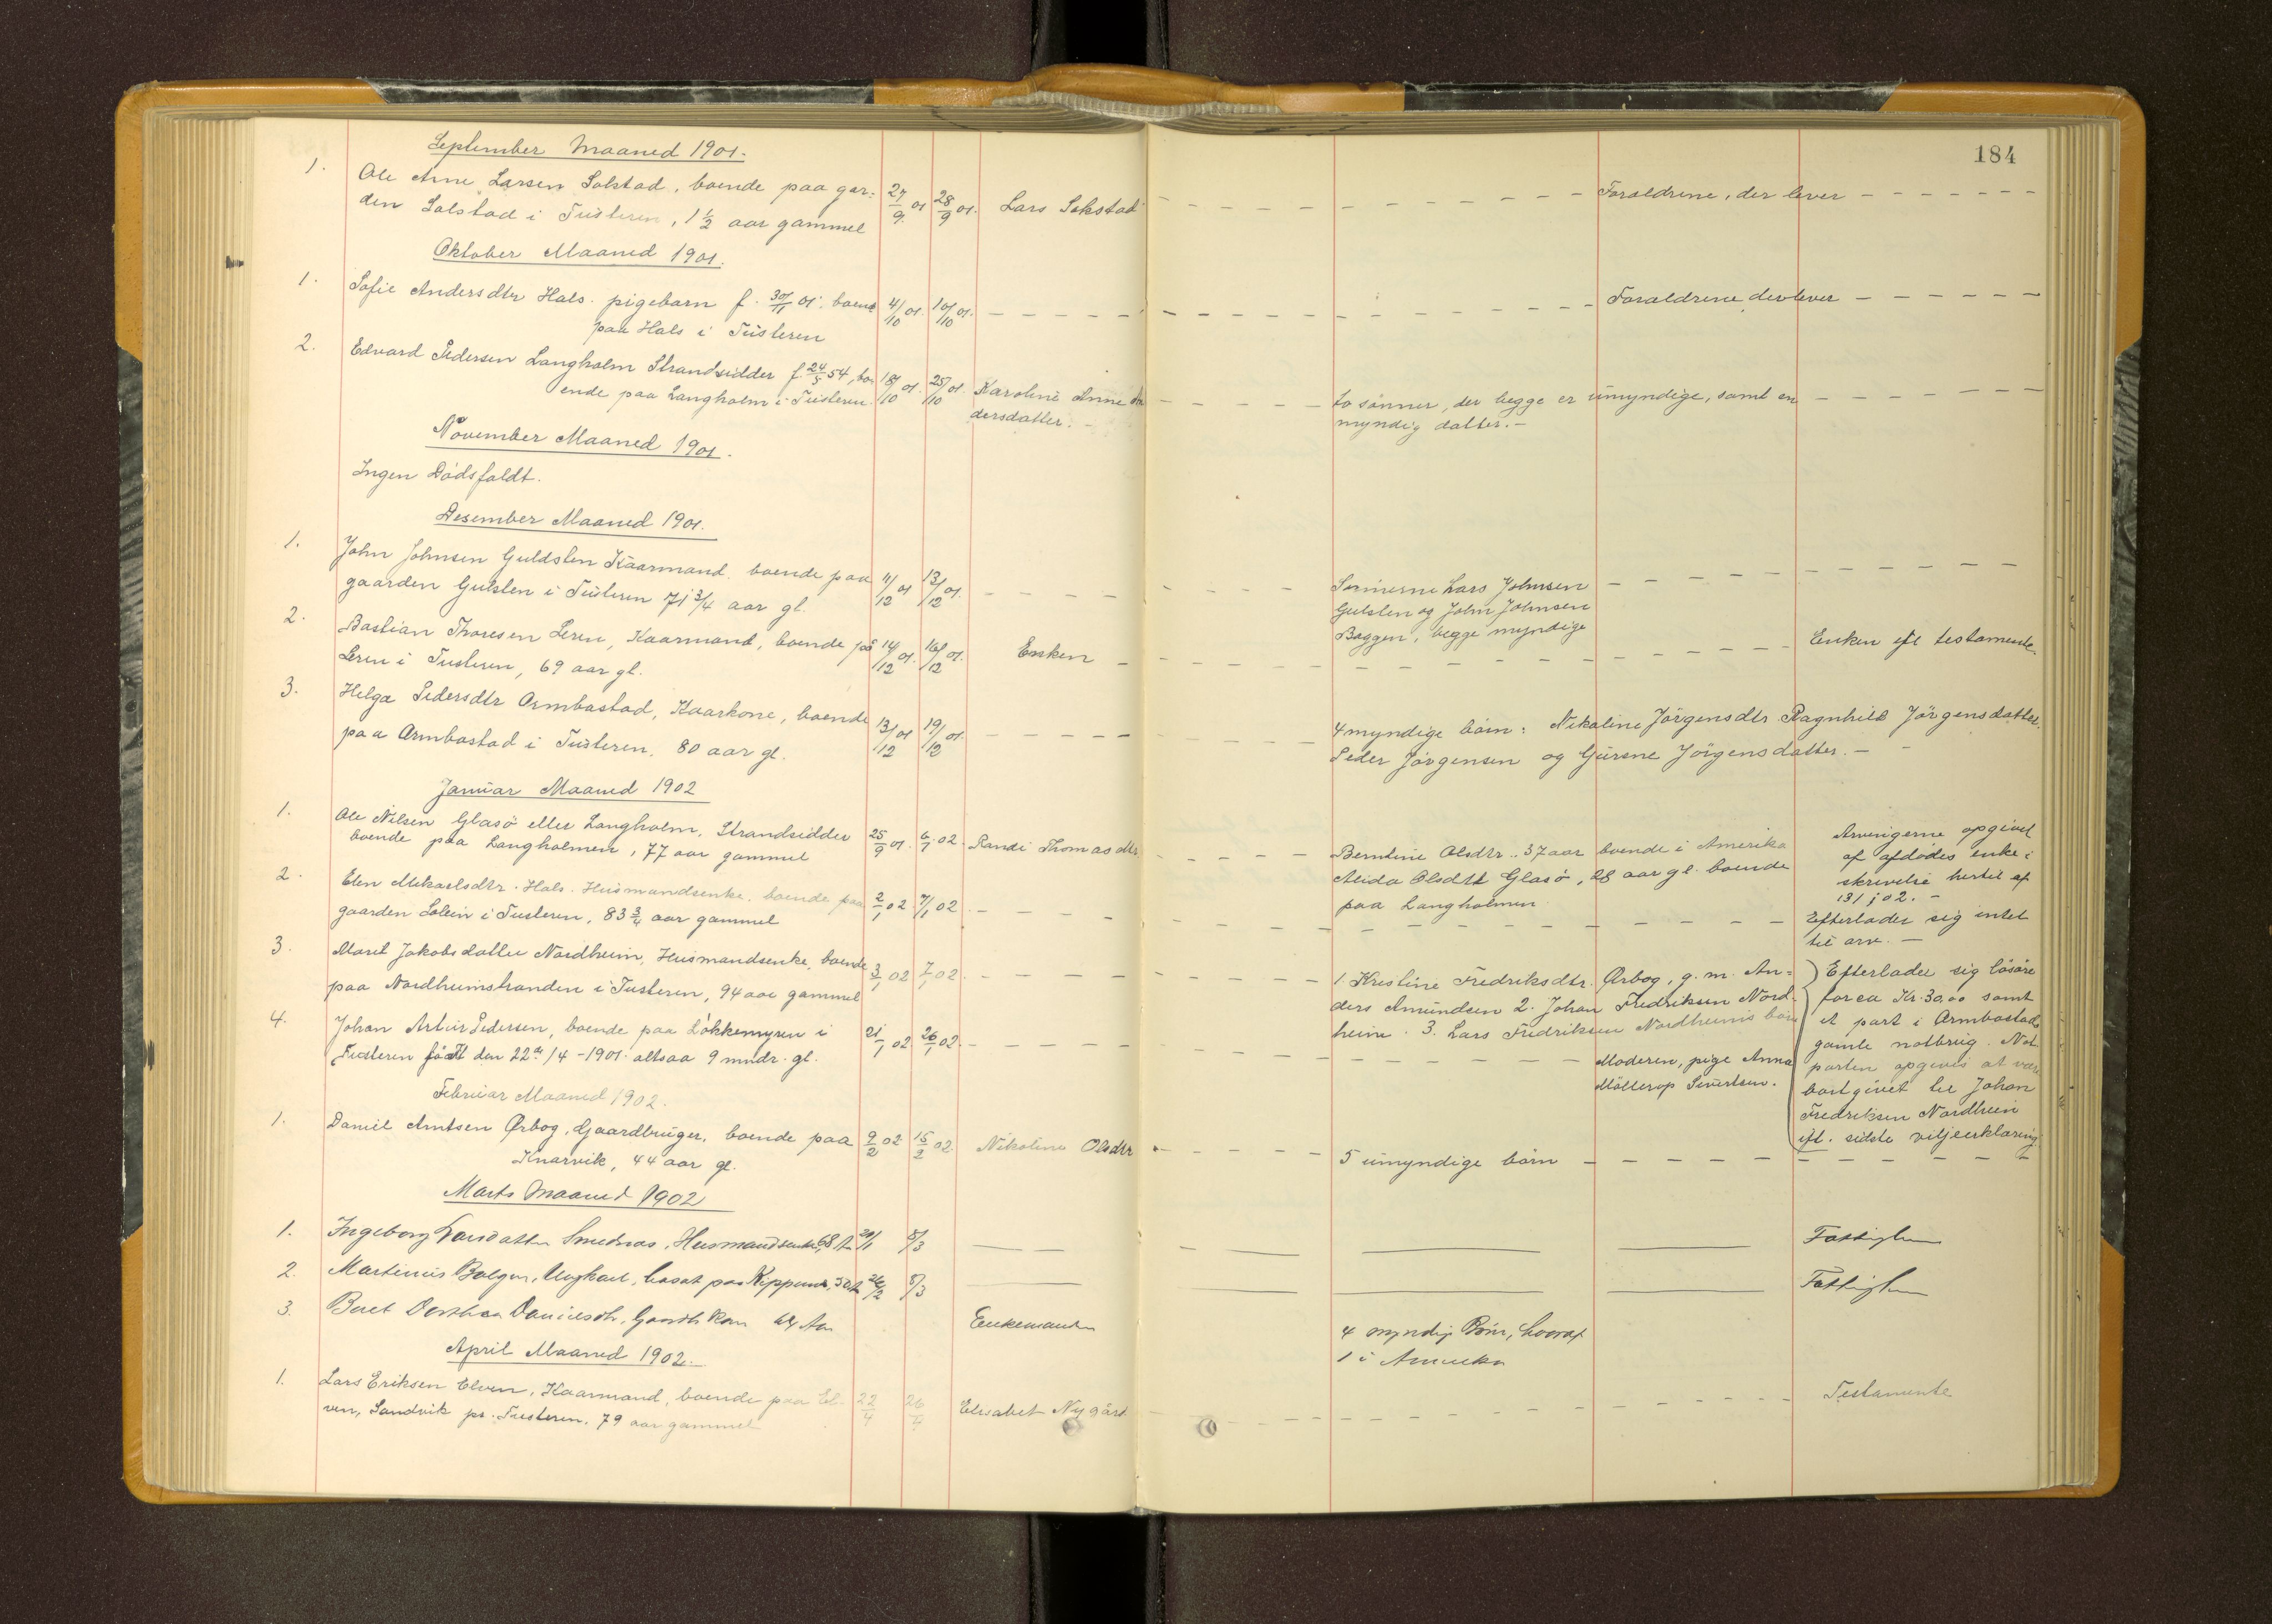 184
September Maaned 1901.
1. Ole Arne Larsen Solstad, boende paa gar- 27/9 01 28/9 01. Lars Solstad Foraldrene, der lever
den Solstad i Tusteren, 1 1/2 aar gammel
Oktober Maaned 1901.
1. Sofie Andersdtr Hals. pigebarn f. 01. boende 4/10 01. 10/10 01. Foraldrene, der lever
paa Hals i Tusteren
2. Edvard Pedersen Langholm Strandsidder f. 24/5 54, bo- 18/10 01. 25/10 01. Karoline Anne An to sönner, der begge er umyndige, samt en
ende paa Langholm i Tusteren. dersdatter. myndig datter.-
November Maaned 1901.
Ingen Dödsfaldt.
Desember Maaned 1901.
1. John Johnsen Guldsten Kaarmand, boende paa 11/12 01 13/12 01. Sönnerne Lars Johnsen
gaarden Gulsten i Tusteren 71 3/4 aar gl. Gulsten og John Johnsen
Baggen, begge myndige
2. Bastian Thoresen Leren, Kaarmand, boende på 14/12 01. 16/12 01. Enken Enken efl testamente.
Leren i Tusteren, 69 aar gl.
3. Helga Pedersdtr Armbastad, Kaarkone, boende 13/12 01 19/12 01. 4 myndige börn: Nikoline Jörgensdtr Ragnhild Jörgensdatter,
paa Armbastad i Tusteren, 80 aar gl. Peder Jörgensen og Gurine Jörgensdatter.-
Januar Maaned 1902
1. Ole Nilsen Glasö eller Langholm, Strandsidder 25/9 01. 6/1 02. Randi Thomasdtr Berntine Olsdtr.. 37 aar boende i Amerika
boende paa Langholmen, 77 aar gammel Alida Olsdtr Glasö, 28 aar gl. boende
paa Langholmen
Arvingerne opgivet
af afdödes enke i
skrivelse hertil af
13/1 02.-
2. Elen Mikaelsdtr. Hals. Husmandsenke, boende paa 2/1 02 7/1 02 Efterlader sig intet
gaarden Solein i Tusteren, 83 3/4 aar gammel til arv.-
3. Marit Jakobsdatter Nordheim, Husmandsenke, boende 3/1 02 7/1 02. 1. Kristine Fredriksdtr. Ørbog, g. m. An-
paa Nordheimstranden i Tusteren, 94 aar gammel ders Amundsen 2. Johan Fredriksen Nord-
heim. 3. Lars Fredriksen Nordheims
Efterlader sig lösöre
for ca Kr. 30.00 samt
et part i Armbastads
gamle notbrug. Not-
parten opgives at være
bortgivet til Johan
Fredriksen Nordheim
efl. sidste viljeerklaring
4. Johan Artur Pedersen, boende paa Lökkemyren i 21/1 02 26/1 02. Moderen, pige Anna
Tusteren födt den 22de/4-1901. altsaa 9 mndr. gl. Möllerop Sivertsen.
Februar Maaned 1902.
1. Daniel Arntsen Ørbog, Gaardbruger, boende paa 9/2 02 15/2 02. Nikoline Olsdtr 5 umyndige börn
Knarvik, 44 aar gl.
Marts Maaned 1902
1. Ingeborg Smednes, Husmandsenke, 68 Aar 5/3 Fattiglem
2. Martinus Bolger, Ungkarl, bosat paa 26/2 5/3 Fattiglem
3. Beret Dorthea Danielsdtr. Enkemanden 4 myndige Börn, hvoraf
1 i Amerika
April Maaned 1902.
1. Lars Eriksen Elven, Kaarmand, boende paa El- 22/4 26/4 Elisabet Nygård Testamente
ven, Sandvik pr. Tusteren. 79 aar gammel